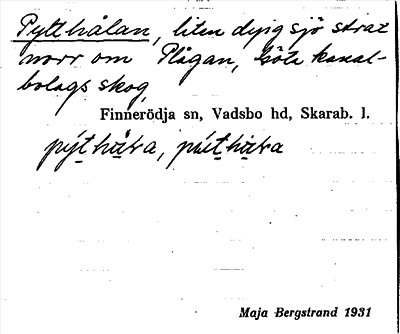 Pytthålan, liten dyig sjö strax
norr om Plågan, Göta kanal-
bolags skog
Finnerödja sn, Vadsbo hd, Skarab. l.
Maja Bergstrand 1931